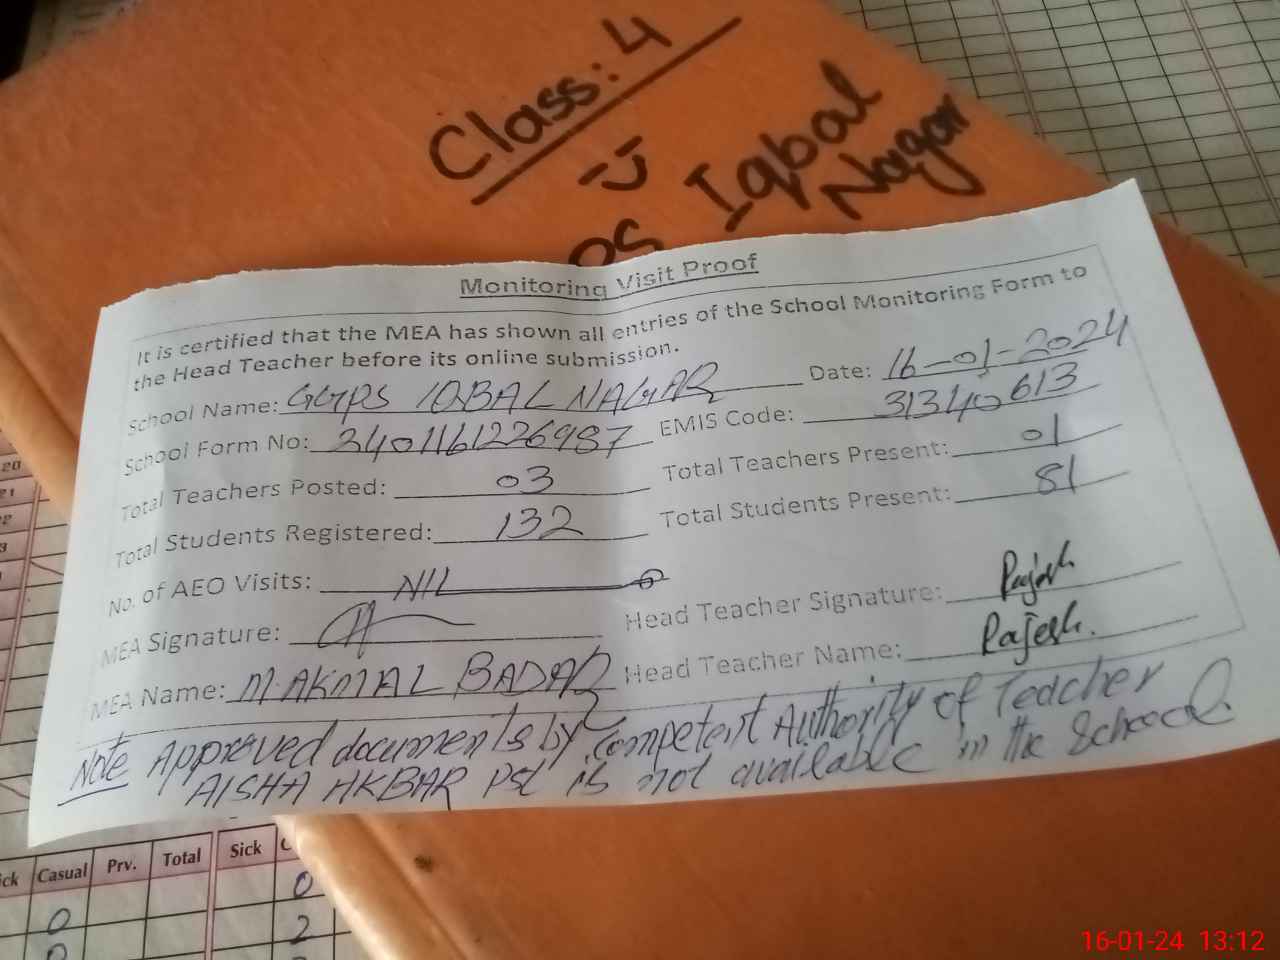 Class: 4
Iqbal
Nagar
Monitoring Visit Proof
It is certified that the MEA has shown all entries of the School Monitoring Form to
the Head Teacher before its online submission.
School Name: GGPS IQBAL NAGAR Date: 16-01-2024
School Form No: 2401161226987 EMIS Code: 31340613
Total Teachers Posted: 03 Total Teachers Present: 01
Total Students Registered: 132 Total Students Present: 81
No. of AEO Visits: NIL
MEA Signature: Head Teacher Signature: Rajesh
MEA Name: M. AKMAL BADAR Head Teacher Name: Rajesh.
Note Approved documents by Competent Authority of Teacher
AISHA AKBAR PST is not available in the School
20
Casual Prv. Total Sick
0 0
2
16-01-24 13:12